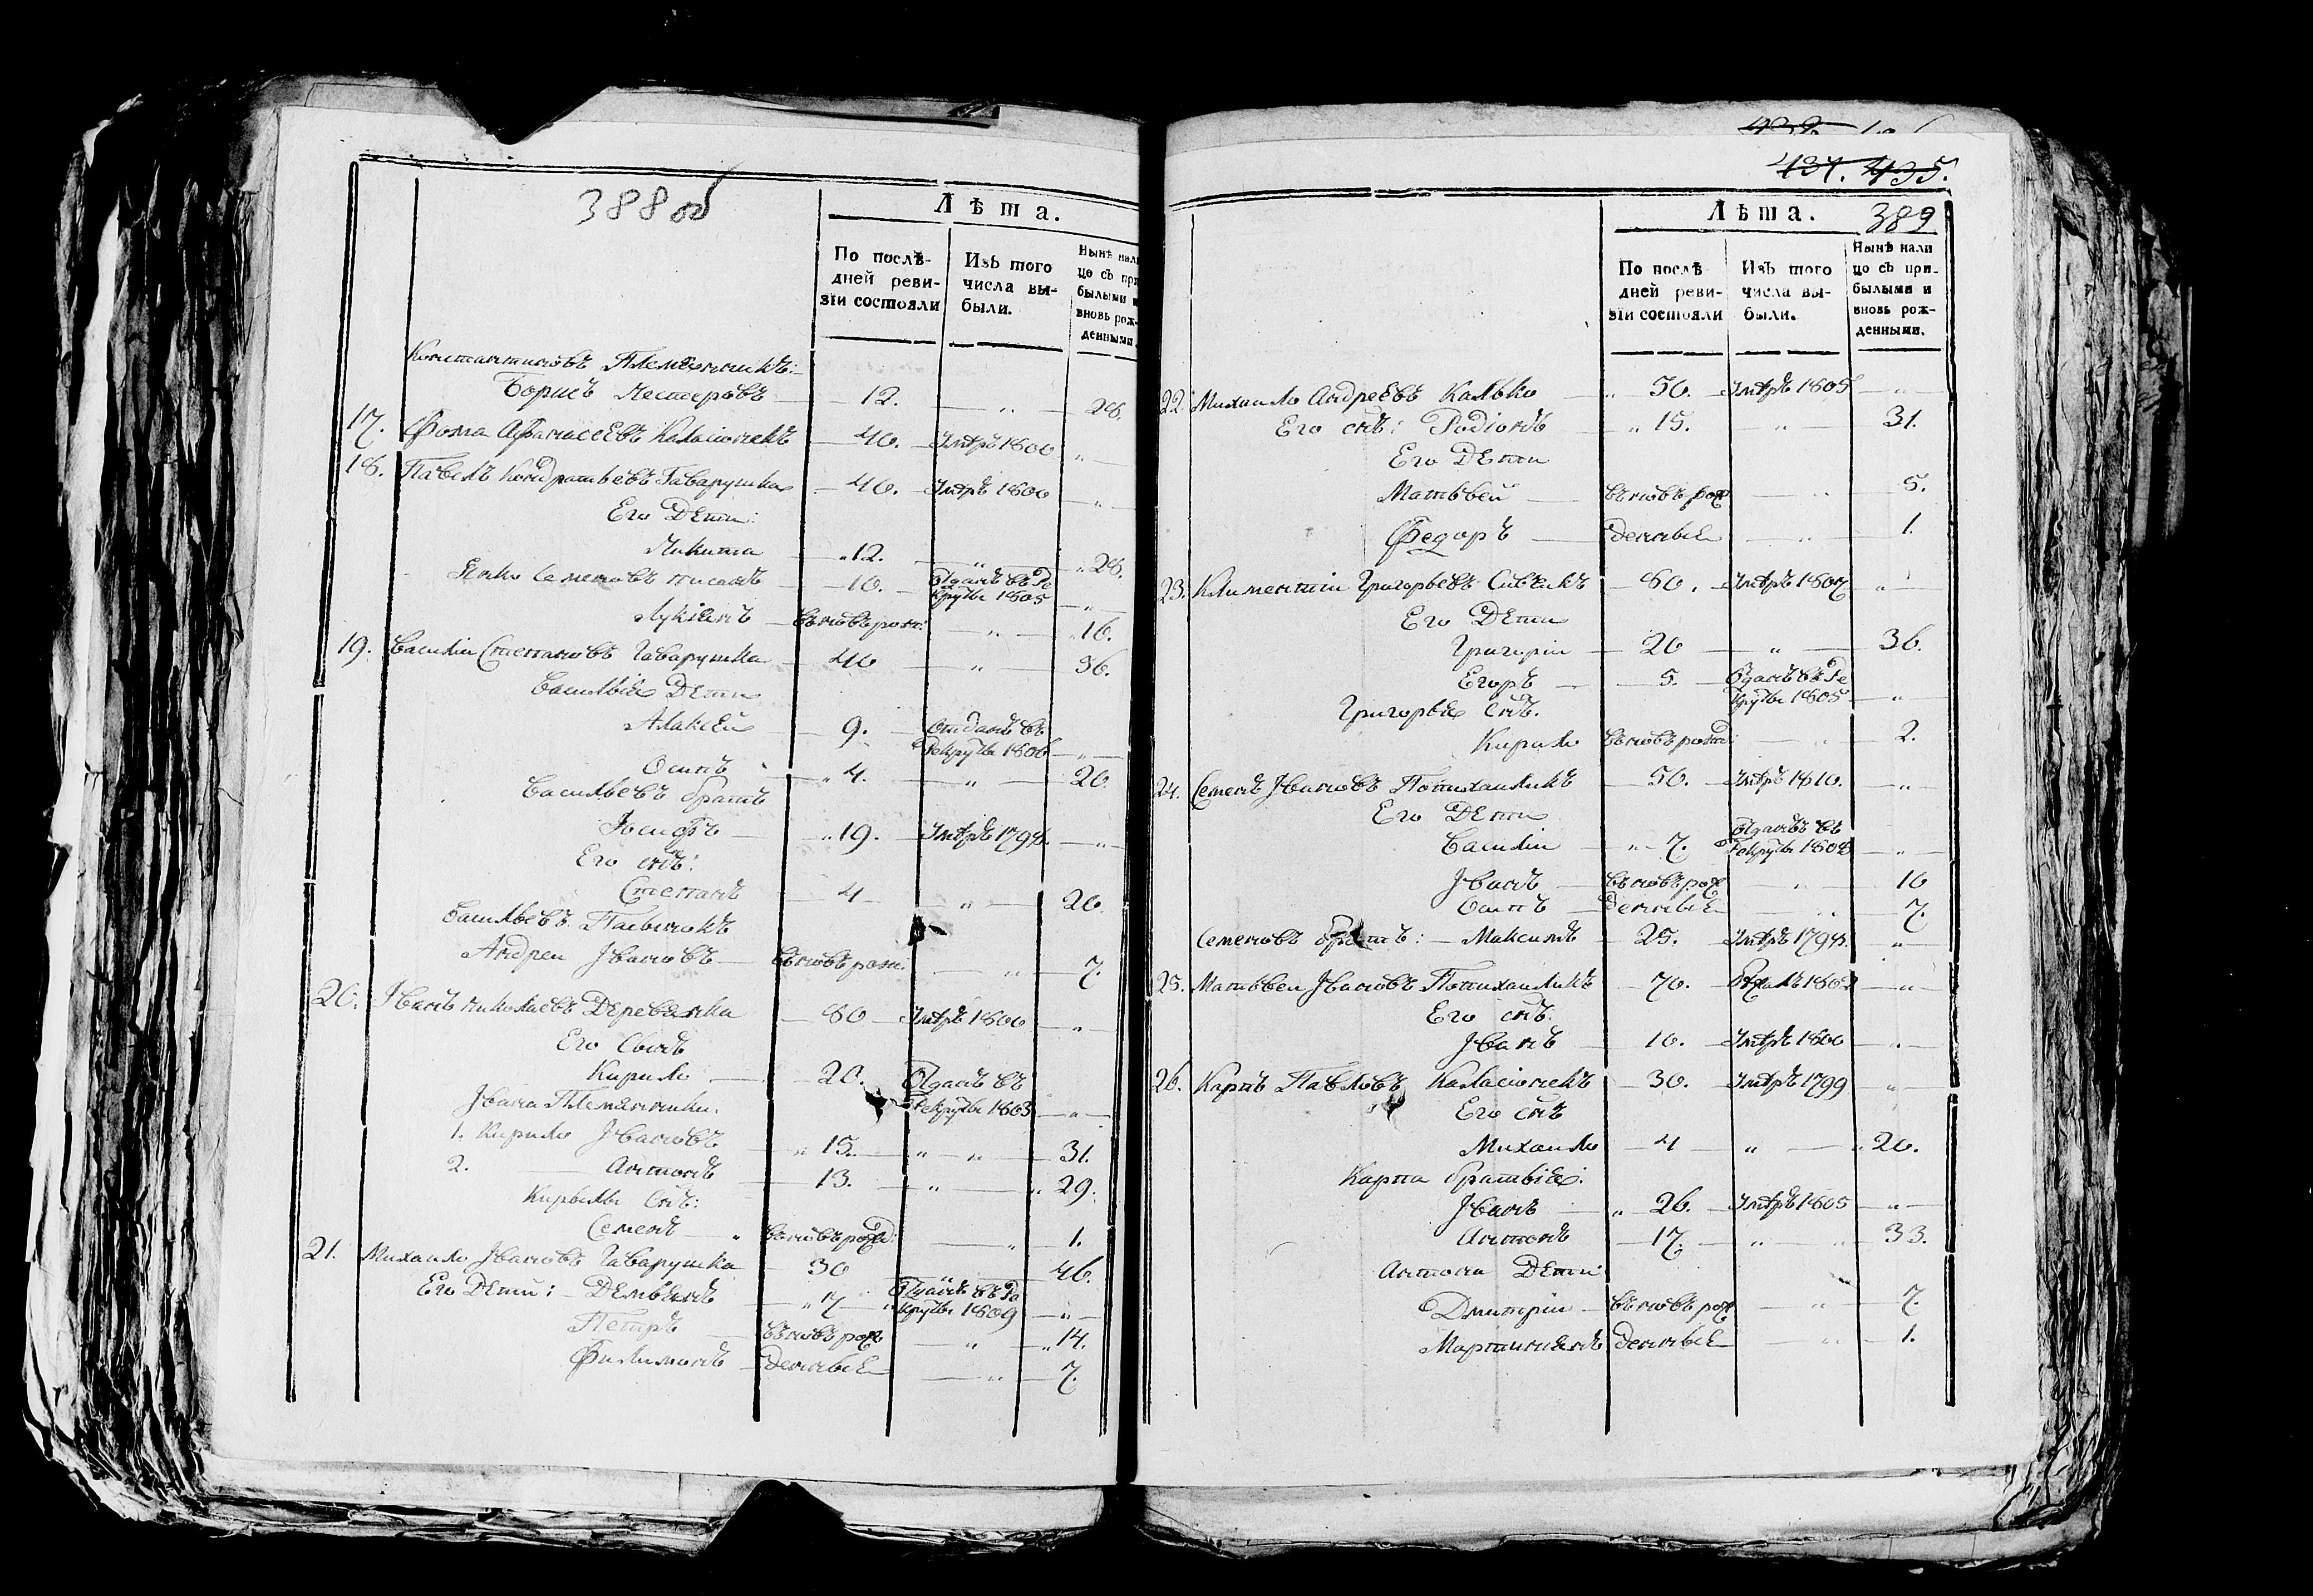 388 об
Лѣта.
По послѣ-
дней реви-
зіи состояли
Изъ того
числа вы-
были.
Нынѣ нали
цо съ при
былыми и
вновь рож-
денными.
Константиновъ Племянникъ:
Борисъ Нестеровъ — 12. — „ — 28.
17. Фома Афанасеевъ Каласіонекъ — 40. — Умѣръ 1800 „ —
18. Павелъ Кондратьевъ Гаварушка — 40. — Умръ 1800 — „
Его Дети:
Никита — „ 12. — „ — „ 28.
Янко Семеновъ — 10. — Отданъ въ Ре
круты 1805 — „ —
Лукіянъ — вновь рож: — „ — „ 16.
19. Василіи Степановъ Гаварушка — 40 — „ — 56.
Васильія Дети
Алаксей — 9. — Отданъ въ
рекруты 1806 — „ —
Осипъ — „ 4. — „ — 20.
Васильевъ братъ
Іосифъ — „ 19. — Умѣръ 1798. — „ —
Его снъ:
Степанъ — 4 — „ — 20.
Васильевъ Пасынокъ
Андреи Івановъ — вновь рож: — „ — 7.
20. Іванъ Николаевъ Деревянка — 80 — Умѣръ 1800 — „ —
Его Сынъ
Кирило — 20. — Отданъ въ
Рекруты 1803 — „ —
Івана Племянники.
1. Кирило Івановъ — „ 15. — „ — „ — 31.
2. — Антонъ — 13. — „ — „ 29.
Кирылы Снъ:
Семенъ — „ вновь рожд: — „ — 1.
21. Михаило Івановъ Гаварушка — 30 — „ — 46.
Его Дети: — Демьянъ — „ 7 — „ Отданъ въ Ре
круты 1809 — „ —
Петръ — вновь рож — „ — „ 14.
Филимонъ — денные — „ — 7.
434. 435.
389
Лѣта.
По послѣ
дней реви-
зіи состояли
Изъ того
числа вы-
были.
Нынѣ нали
цо съ при-
былыми и
вновь рож-
денными.
22. Михаило Андреевъ Калько — „ 50. — Умѣръ 1805 — „ —
Его снъ: Родіонъ — „ 15. — „ — 31.
Его Дети
Матвѣей — вновь рож — „ — 5.
Федоръ — денные — „ — 1.
23. Климентіи Григорьевъ Сивекъ — 60. — Умѣръ 1807 — „ —
Его Дети
Григоріи — 20 — „ — 36.
Егоръ — 5. — Отданъ въ Ре
круты 1805 — „
Григорья Снъ.
Кирило вновь рожд — „ — 2.
24. Семенъ Івановъ Потихаликъ — 50. — Умѣръ 1810. — „ —
Его Дети
Василіи — „ 7. — Отданъ въ
Рекруты 1808 — „ —
Іванъ — вновь рож — „ — 10
Осипъ — денные — „ — 7.
Семеновъ братъ: — Максимъ — 25. — Умѣръ 1798. — „
25. Матвѣеи Івановъ Потихаликъ — 70. — — „ —
Его снъ:
Іванъ — 10. — Умѣръ 1800 — „ —
26. Карпъ Павловъ Каласіонекъ — 30. — Умѣръ 1799 „
Его снъ
Михаило — 4 — „ — „ 20.
Карпа братьія:
Іванъ — „ 26. — Умѣръ 1805 — „ —
Антонъ — 17. — „ — „ — 33.
Антона Дети
Дмитріи — вновь рож — „ — 7.
Мартинианъ денные — „ — 1.